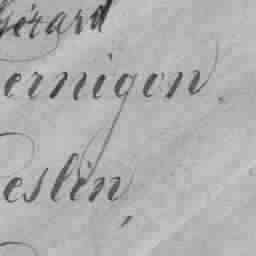 Gérard
ernigon.
eslin,